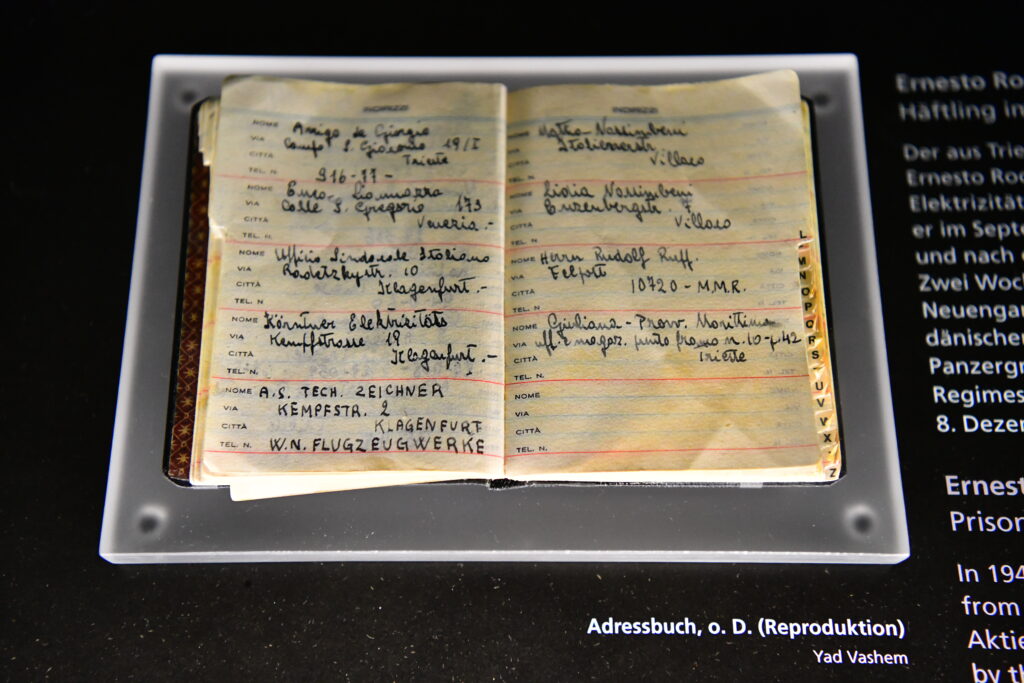 INDIRIZZI
NOME Amigo de Giorgio
VIA Campo S. Giacomo 19/I
CITTÀ Trieste
TEL. N. 916-77-
NOME
VIA Calle S. Gregorio 173
CITTÀ Venezia.-
TEL. N.
NOME Ufficio Sindacale Italiano
VIA Radetzkystr. 10
CITTÀ Klagenfurt.-
TEL. N.
NOME Kärntner Elektrizitäts
VIA Kempfstrasse 19
CITTÀ Klagenfurt.-
TEL. N.
NOME A.S. TECH. ZEICHNER
VIA KEMPFSTR. 2
CITTÀ KLAGENFURT
TEL. N. W.N. FLUGZEUGWERKE
INDIRIZZI
NOME Nassimbeni
VIA Italienerstr.
CITTÀ Villaco
TEL. N.
NOME Lidia Nassimbeni
VIA 7
CITTÀ Villaco
TEL. N.
NOME Herrn Rudolf Ruff.
VIA Felpost
CITTÀ 10720 - M.M.R.
TEL. N.
NOME Giuliana - Prov. Marittima
VIA uff. e magaz. punto franco n. 10 - p. 42
CITTÀ Trieste
TEL. N.
NOME
VIA
CITTÀ
TEL. N.
L
M
N
O
P
Q
R
S
T
U
V
X
Z
Adressbuch, o. D. (Reproduktion)
Yad Vashem
Ernesto Ro
Häftling in
Der aus Trie
Ernesto Roc
Elektrizität
er im Septe
und nach
Zwei Woc
Neuengar
dänischer
Panzergr
Regimes
8. Dezer
Ernest
Prison
In 194
from
Aktie
by th